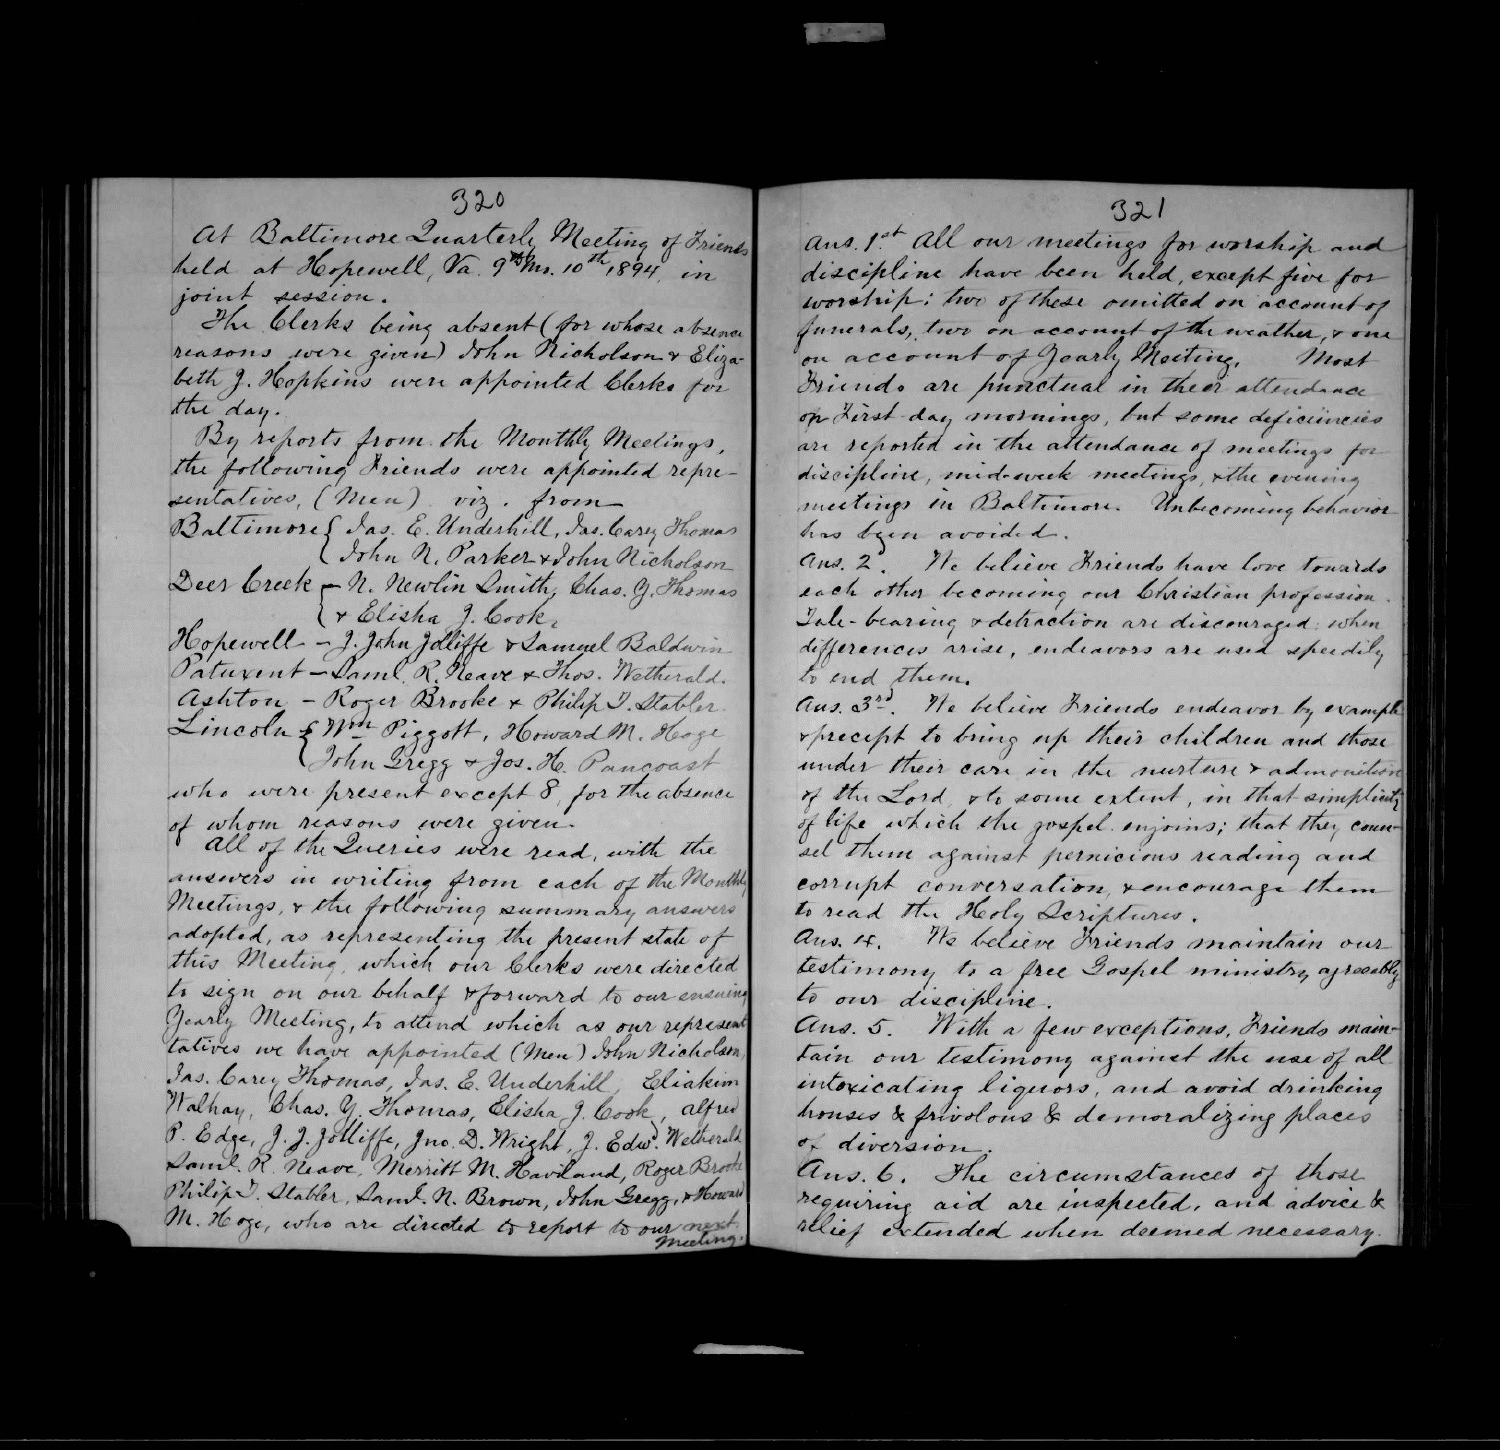 320
At Baltimore Quarterly Meeting of Friends
held at Hopewell, Va. 9th Mo. 10th, 1894 in
joint session.
The Clerks being absent (for whose absence
reasons were given) John Nicholson & Eliza-
beth J. Hopkins were appointed Clerks for
the day.
By reports from the Monthly Meetings,
the following Friends were appointed repre-
sentatives, (Men) viz. from
Baltimore { Jas. E. Underhill, Jas. Carey Thomas
John N. Parker & John Nicholson
Deer Creek { N. Newlin Smith, Chas. Y. Thomas
& Elisha J. Cook.
Hopewell - J. John Jolliffe & Samuel Baldwin
Patuxent - Saml. R. Neave & Thos. Wetherald.
Ashton - Roger Brooke & Philip T. Stabler.
Lincoln { Wm Piggott, Howard M. Hoge
John Gregg & Jos. H. Pancoast
who were present except 8, for the absence
of whom reasons were given.
All of the Queries were read, with the
answers in writing from each of the Monthly
Meetings, & the following summary answers
adopted, as representing the present state of
this Meeting, which our Clerks were directed
to sign on our behalf & forward to our ensuing
Yearly Meeting, to attend which as our represen-
tatives we have appointed (Men) John Nicholson,
Jas. Carey Thomas, Jas. E. Underhill, Eliakim
Walhay, Chas. Y. Thomas, Elisha J. Cook, Alfred
P. Edge, J. J. Jolliffe, Jno. D. Wright, J. Edwd. Wetherald
Saml. R. Neave, Merritt M. Haviland, Roger Brooke
Philip T. Stabler, Saml. N. Brown, John Gregg, & Howard
M. Hoge, who are directed to report to our next
Meeting.
321
Ans. 1st All our meetings for worship and
discipline have been held, except five for
worship; two of these omitted on account of
funerals, two on account of the weather, & one
on account of Yearly Meeting. Most
Friends are punctual in their attendance
on First-day mornings, but some deficiencies
are reported in the attendance of meetings for
discipline, mid-week meetings, & the evening
meetings in Baltimore. Unbecoming behavior
has been avoided.
Ans. 2. We believe Friends have love towards
each other becoming our Christian profession.
Tale-bearing & detraction are discouraged: when
differences arise, endeavors are used speedily
to end them.
Ans. 3rd. We believe Friends endeavor by example
& precept to bring up their children and those
under their care in the nurture & admonition
of the Lord, & to some extent, in that simplicity
of life which the gospel enjoins; that they coun-
sel them against pernicious reading and
corrupt conversation, & encourage them
to read the Holy Scriptures.
Ans. 4. We believe Friends maintain our
testimony to a free Gospel ministry agreeably
to our discipline.
Ans. 5. With a few exceptions, Friends main-
tain our testimony against the use of all
intoxicating liquors, and avoid drinking
houses & frivolous & demoralizing places
of diversion.
Ans. 6. The circumstances of those
requiring aid are inspected, and advice &
relief extended when deemed necessary.